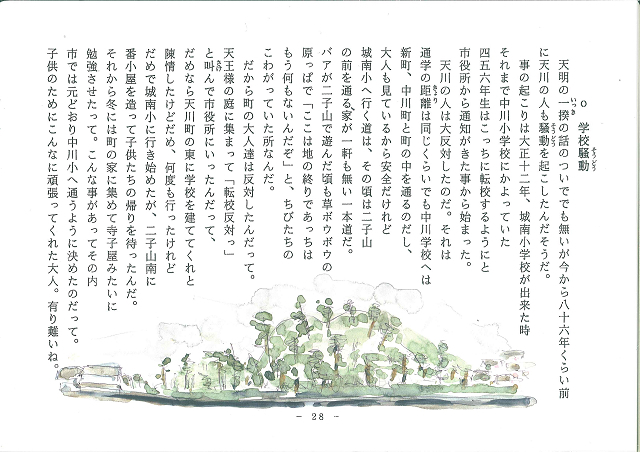 o 学校騒動
そうどう
天明の一揆の話のついででも無いが今から八十六年くらい前
いっき
に天川の人も騒動を起こしたんだそうだ。
そうどう
事の起こりは大正十二年、城南小学校が出来た時
それまで中川小学校にかよっていた
四五六年生はこっちに転校するようにと
市役所から通知がきた事から始まった。
天川の人は大反対したのだ。それは
通学の距離は同じくらいでも中川学校へは
きょり
新町、中川町と町の中を通るのだし、
大人も見ているから安全だけれど
城南小へ行く道は、その頃は二子山
の前を通る家が一軒も無い一本道だ。
バアが二子山で遊んだ頃も草ボウボウの
原っぱで「ここは地の終りであっちは
もう何もないんだぞ」と、ちびたちの
こわがっていた所なんだ。
だから町の大人達は反対したんだって。
天王様の庭に集まって「転校反対っ」
と叫んで市役所にいったんだって、
さけ
だめなら天川町の東に学校を建ててくれと
陳情したけどだめ、何度も行ったけれど
だめで城南小に行き始めたが、二子山南に
番小屋を造って子供たちの帰りを待ったんだ。
それから冬には町の家に集めて寺子屋みたいに
勉強させたって。こんな事があってその内
市では元どおり中川小へ通うように決めたのだって。
子供のためにこんなに頑張ってくれた大人。有り難いね。
- 28 -